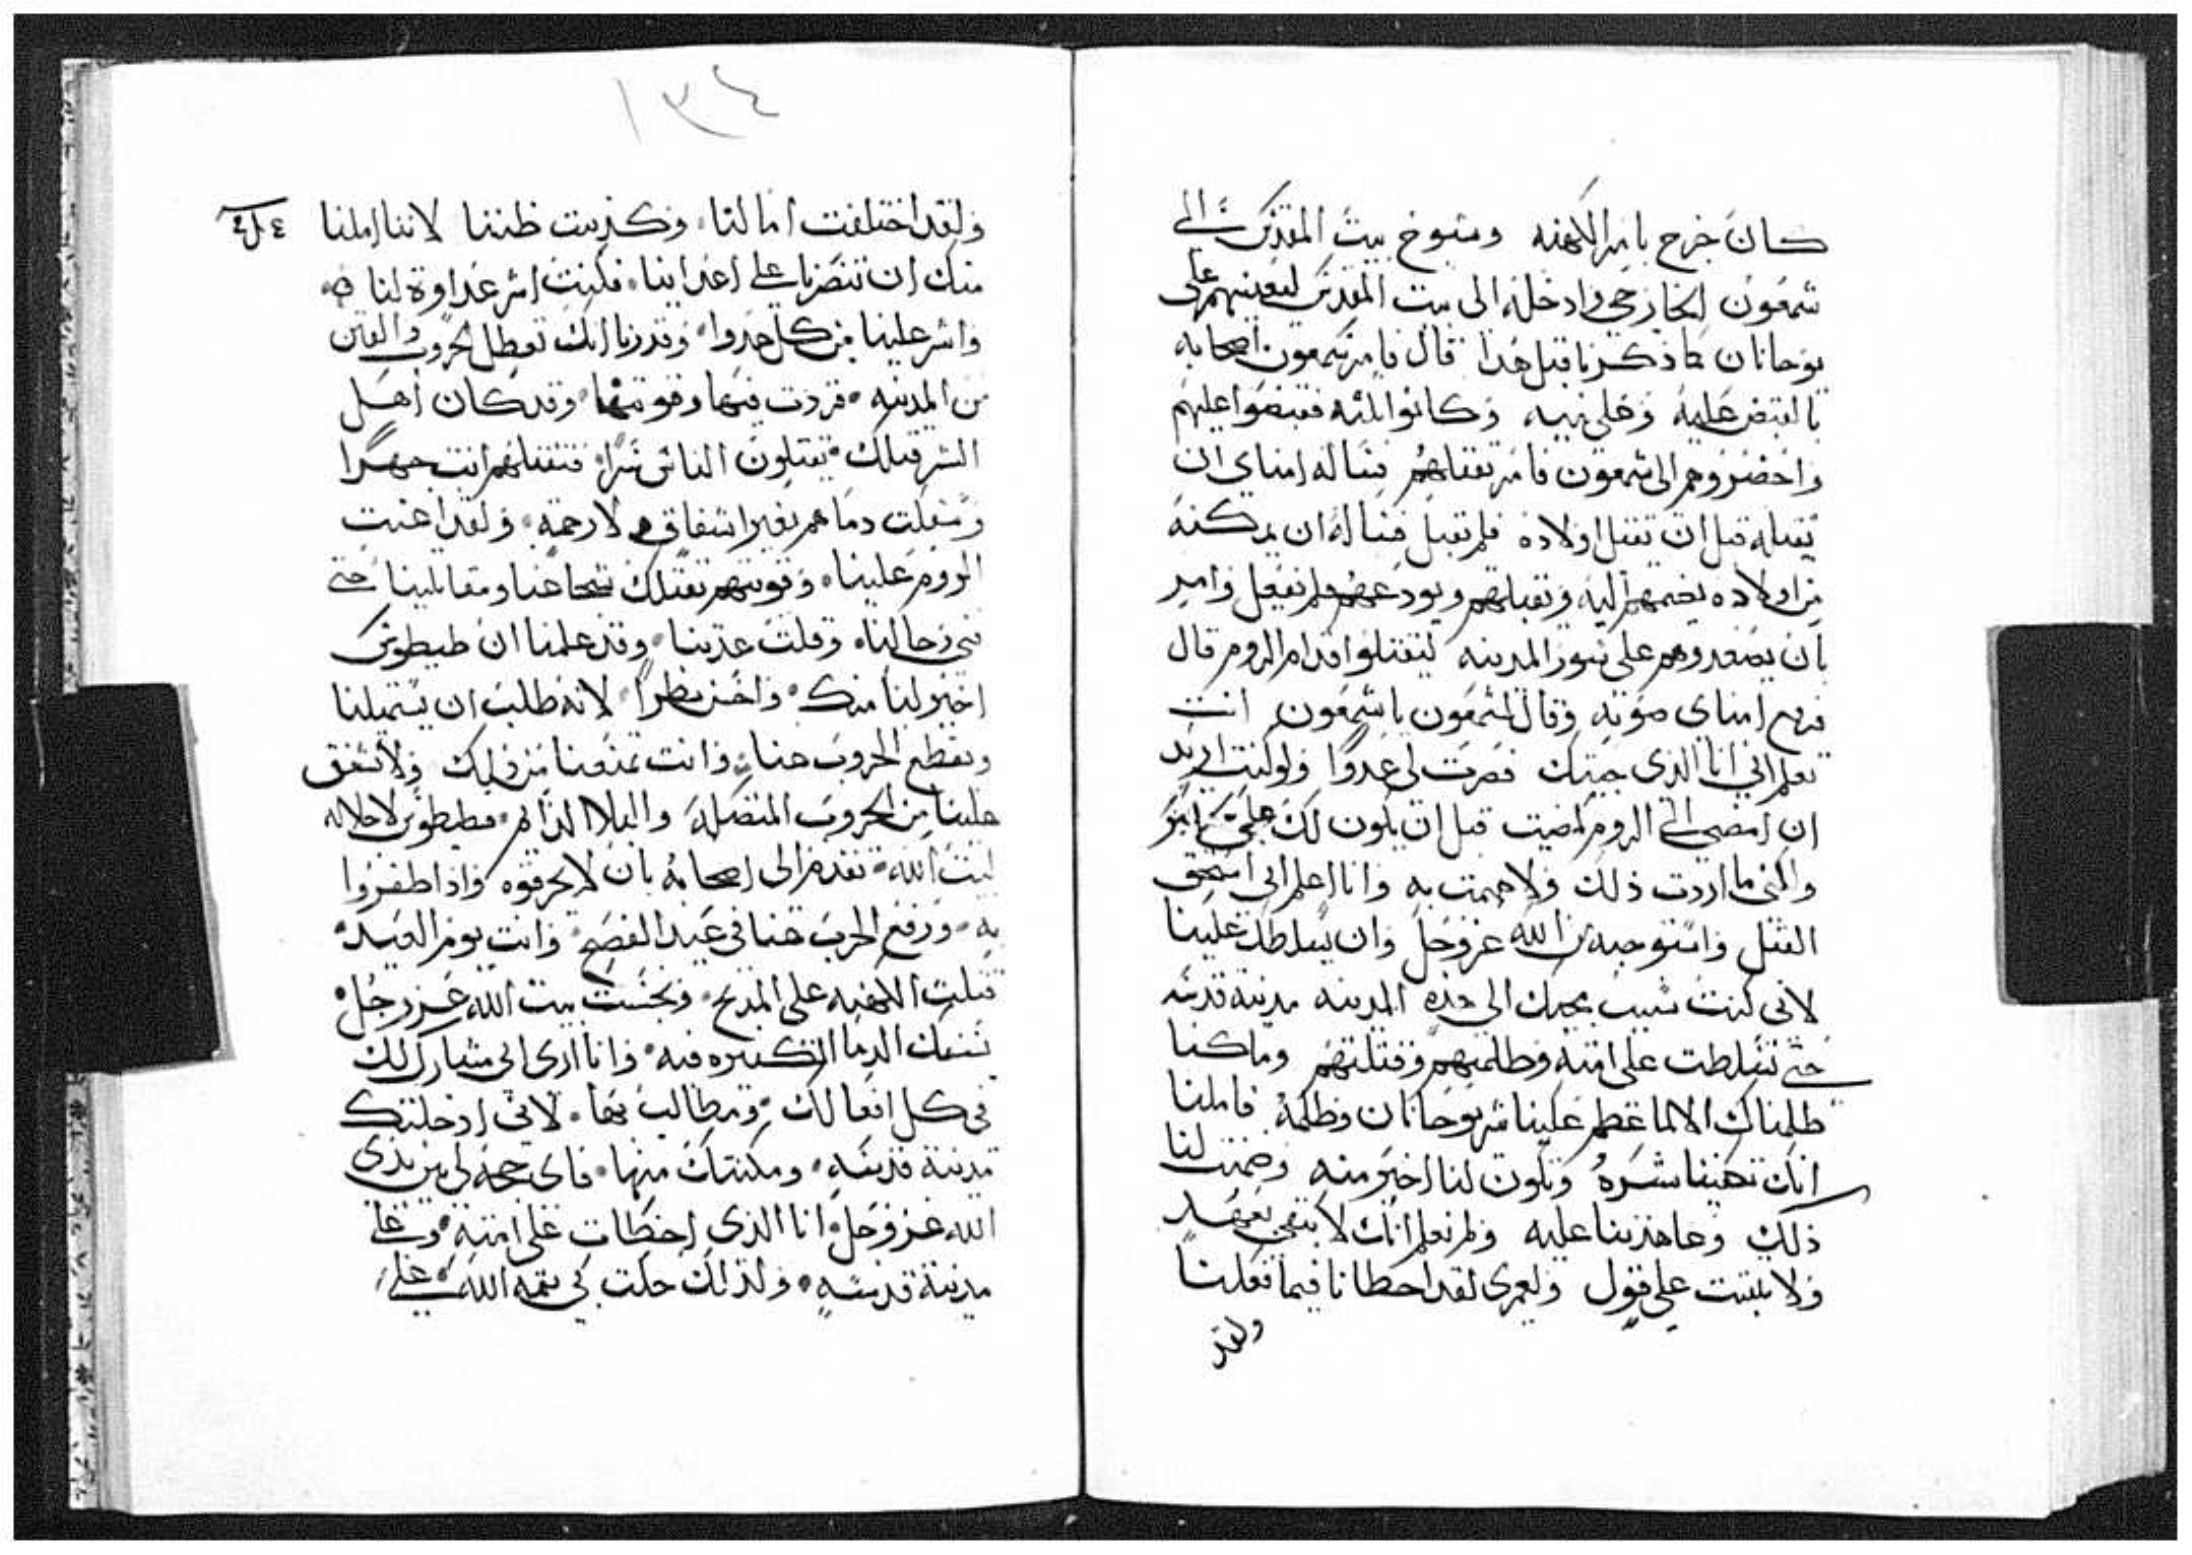 كان خرج بامر الكهنه وشيوخ بيت المقدس الى
شمعون الخارجي وادخله الى بيت المقدس ليعينهم على
يوحانان كما ذكرنا قبل هذا قال فامر شمعون اصحابه
بالقبض عليه وعلى بنيه وكانوا ثلثه فقبضوا عليهم
واحضروهم الى شمعون فامر بقتلهم فساله امتاي ان
يقتله قبل ان يقتل اولاده فلم يقبل فساله ان يمكنه
من اولاده يضمهم اليه ويقبلهم ويودعهم فلم يفعل وامر
بان يصعدوهم على سور المدينه ليقتلوا قدام الروم قال
فرفع امتاي صوته وقال لشمعون يا شمعون انت
تعلم اني انا الذي جيتك فصرت لي عدوًا ولو كنت اريد
ان امضي الى الروم لمضيت قبل ان يكون لك علي امر
ولكني ما اردت ذلك ولا هممت به وانا اعلم اني استحق
القتل واستوجبه من الله عز وجل وان يسلطك علينا
لاني كنت سبب مجيك الى هذه المدينه مدينة قدسه
حتى تسلطت على امته وظلمتهم وقتلتهم وماكنا
طلبناك الا لما عظم علينا شر يوحانان وظلمه فاملنا
انك تكفينا شره وتكون لنا اخير منه وضمنت لنا
ذلك وعاهدتنا عليه ولم نعلم انك لا تفي بعهد
ولا تثبت على قول ولعمري لقد اخطانا فيما فعلنا
ولقد
١٣٤
ولقد اختلفت امالنا وكذبت ظننا لاننا املنا
منك ان تنصرنا على اعداينا فكنت اشر عداوة لنا
واشر علينا من كل عدوا وقدرنا انك تعطل الحروب والفتن
من المدينه فزدت فيها وقويتها وقد كان اهل
الشر قبلك يقتلون الناس سرًا فتقتلهم انت جهرًا
وسفكت دماهم بغير اشفاق ولا رحمة ولقد اعنت
الروم علينا وقويتهم بقتلك شجاعنا ومقاتلينا حتى
فني رجالنا وقلت عدتنا وقد علمنا ان طيطوس
اخير لنا منك واحسن نظرًا لانه طلب ان يستميلنا
ويقطع الحروب عنا وانت تمنعنا من ذلك ولا تشفق
علينا من الحروب المتصله والبلا الدايم فطيطوس لاجلاله
لبيت الله تقدم الى اصحابه بان لا يحرقوه واذا ظفروا
به ورفع الحرب عنا في عيد الفصح وانت يوم العيد
قتلت الكهنه على المذبح ونجست بيت الله عز وجل
بسفك الدما الكثيره فيه وانا ارى اني مشارك لك
في كل افعالك ومطالب بها لاني ادخلتك
مدينة قدسه ومكنتك منها فاي حجه لي بين يدي
الله عز وجل انا الذي اخطات على امته وعلى
مدينة قدسه ولذلك حلت بي نقمه الله على